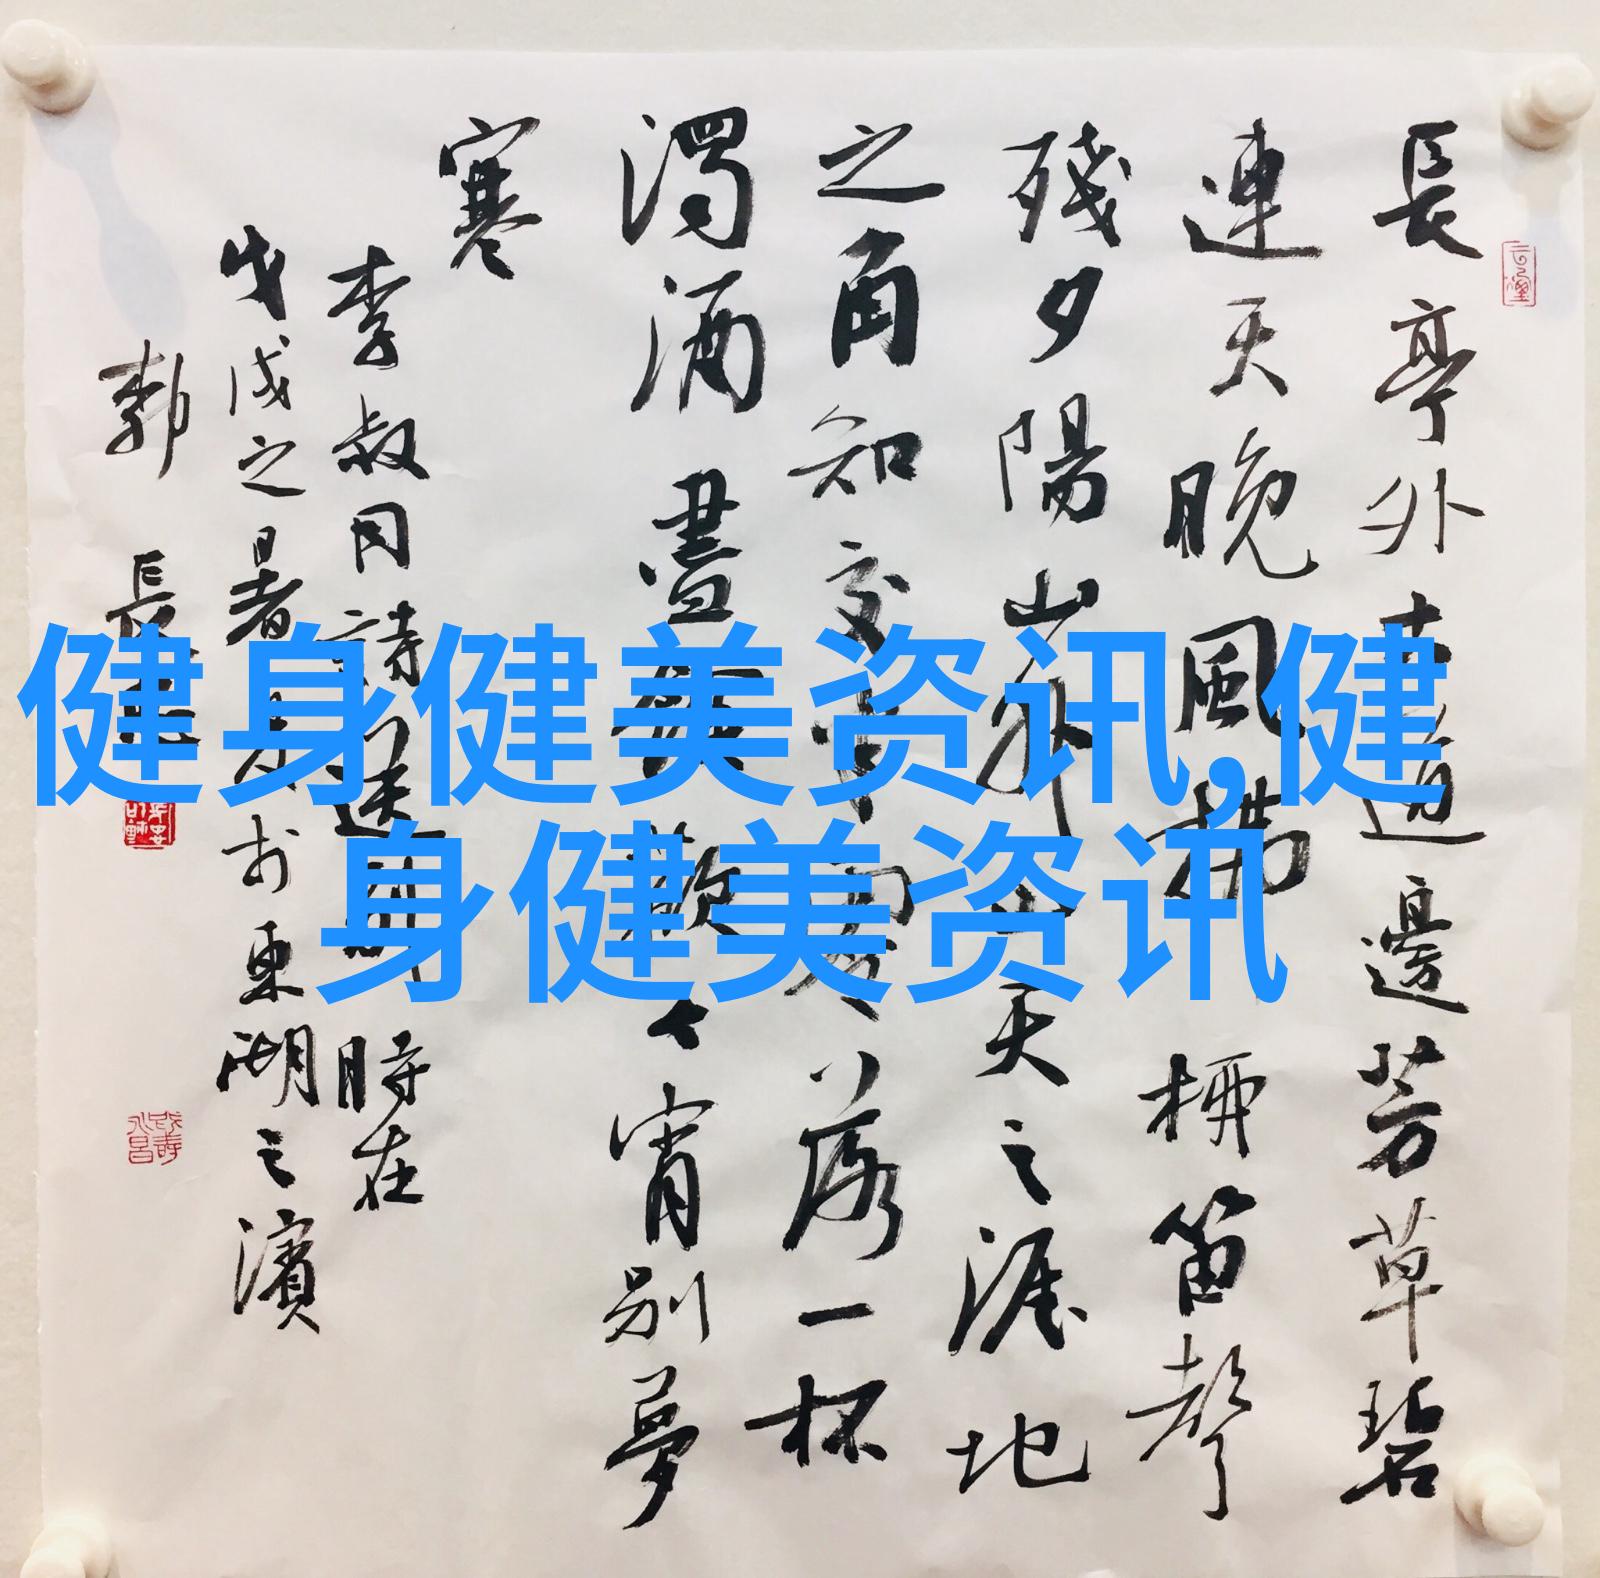 長亭外古道邊芳草碧
連天晚風拂柳笛聲
殘夕陽山外山天之涯地
之角知交半零落一杯
濁酒盡餘歡今宵別夢
寒
李叔同詩送別時在
戊戌之暑於東湖之濱
郭長
健身健美资讯,健
身健美资讯